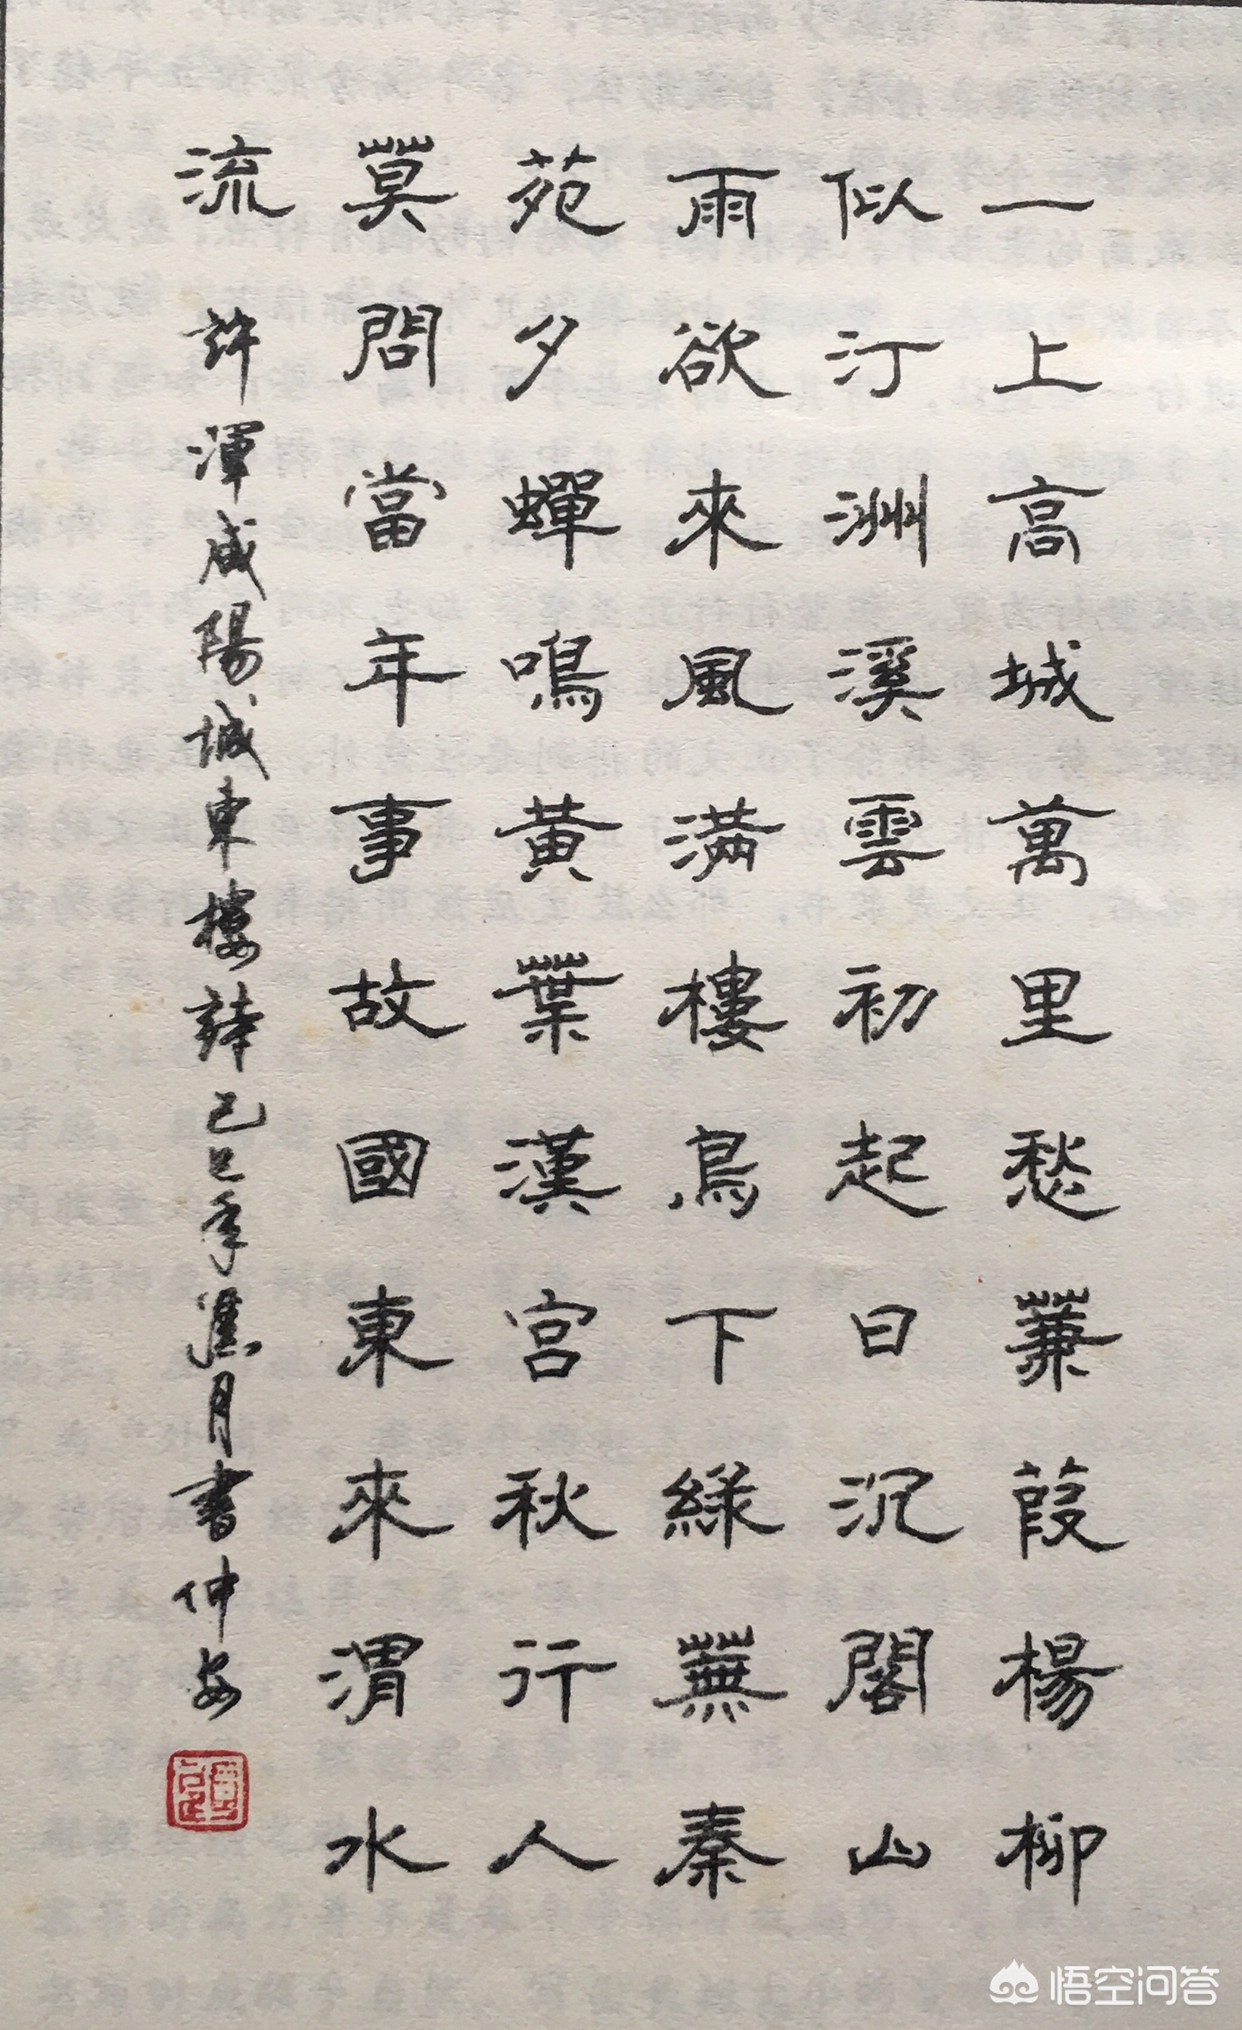 一上高城萬里愁蒹葭楊柳
似汀洲溪雲初起日沉閣山
雨欲來風滿樓鳥下綠蕪秦
苑夕蟬鳴黃葉漢宮秋行人
莫問當年事故國東來渭水
流 許渾咸陽城東樓詩己巳年月書仲
悟空问答